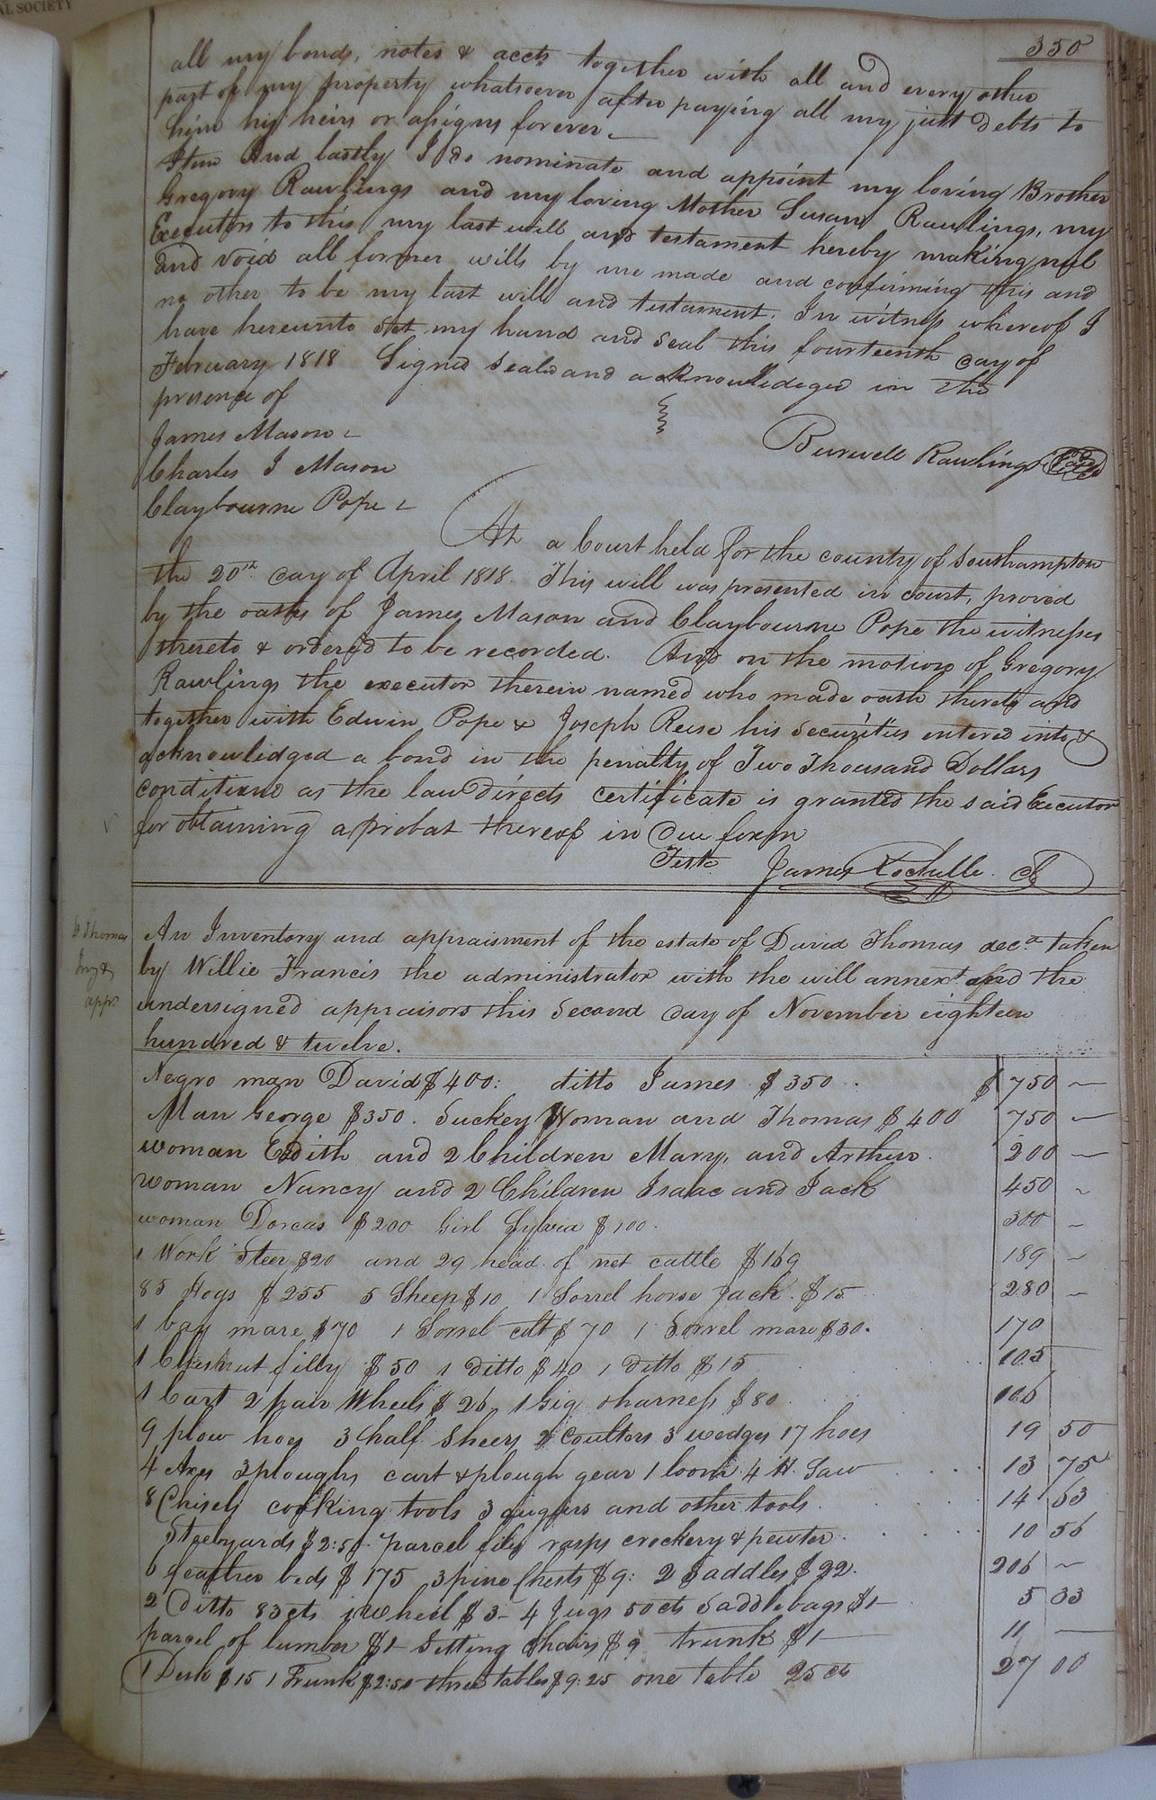 AL SOCIETY
350
all my bonds, notes & accts together with all and every other
part of my property whatsoever after paying all my just debts to
him his heirs or assigns forever.
Item And lastly I do nominate and appoint my loving Brother
Gregory Rawlings and my loving Mother Susan Rawlings, my
Executors to this my last will and testament hereby making nul
and void all former wills by me made and confirming this and
no other to be my last will and testament. In witness whereof I
have hereunto set my hand and seal this fourteenth day of
February 1818 Signed seald and acknowledged in the
presence of
James Mason
Charles I Mason
Claybourne Pope
Burwell Rawlings Seal
At a Court held for the county of Southampton
the 20th day of April 1818. This will was presented in court, proved
by the oaths of James Mason and Claybourne Pope the witnesses
thereto & ordered to be recorded. And on the motion of Gregory
Rawlings the executor therein named who made oath thereto and
together with Edwin Pope & Joseph Reese his securities entered into &
acknowledged a bond in the penalty of Two Thousand Dollars
conditioned as the law directs certificate is granted the said Executor
for obtaining a probat thereof in due form
Teste James Rochelle. Cl
D Thomas
Invy &
appr.
An Inventory and appraisment of the estate of David Thomas decd taken
by Willie Francis the administrator with the will annext and the
undersigned appraisors this Second day of November eighteen
hundred & twelve.
Negro man David $400: ditto James $350 .. $ 750 —
Man George $350. Suckey Woman and Thomas $400 750 —
woman Edith and 2 Children Mary, and Arthur. 200 —
woman Nancy and 2 Children Isaac and Jack 450 ~
woman Dorcas $200 Girl Sylvia $100. 300 ~
1 Work Steer $20 and 29 head of net cattle $169 189 ~
85 Hogs $255 5 Sheep $10 1 Sorrel horse Jack $15 280 ~
1 bay mare $70 1 Sorrel colt $70 1 Sorrel mare $30. 170
1 Chesnut filly $50 1 ditto $40 1 ditto $15 105
1 Cart 2 pair Wheels $26, 1 Gig & harness $80 106
9 plow hoes 3 half Sheers 2 Coulters 3 wedges 17 hoes 19 50
4 Axes 3 ploughs cart & plough gear 1 loom 4 H. Saw 13 75
8 Chisels tools 3 and other tools. 14 63
Steelyards $2:50 parcel files rasps crockery & pewter. 10 56
6 feather beds $175 3 pine Chests $9: 2 Saddles $22. 206 ~
2 Ditto 83cts 1 wheel $3- 4 Jugs 50cts Saddlebags $1— 5 33
parcel of lumber $1- Setting Chairs $9 trunk $1— 11 —
1 Desk $15 1 Trunk $2:50 three tables $9:25 one table 25 cts 27 00